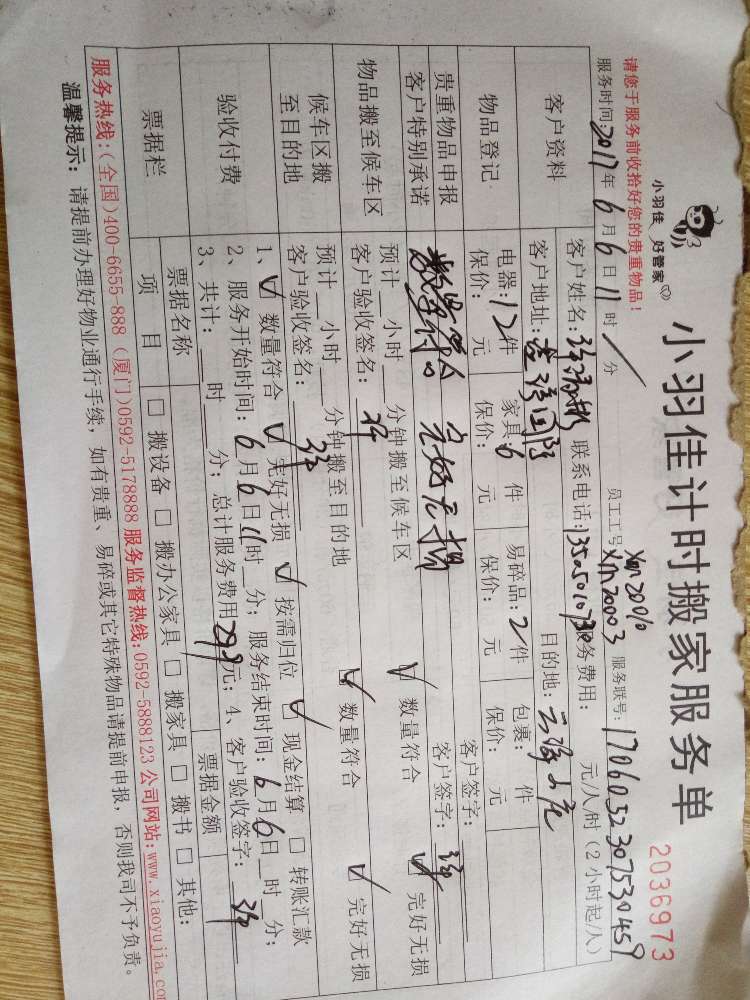 小羽佳计时搬家服务单
2036973
小羽佳 好管家
请您于服务前收拾好您的贵重物品!
员工工号 Xm20010
Xm20003 服务联号: 1706052307530459
服务时间: 2017年6月6日11时/分
客户资料
客户姓名: 联系电话: 服务费用: 元/人/时(2小时起/人)
客户地址: 目的地:
物品登记
电器: 12件 家具: 6件 易碎品: 2件 包裹: 件
保价: 元 保价: 元 保价: 元 保价: 元
贵重物品申报 客户签字:
客户特别承诺 数量确认 完好无损 客户签字:
物品搬至候车区
预计__小时__分钟搬至候车区 ☑ 数量符合 ☑ 完好无损
客户验收签名:
候车区搬至目的地
预计__小时__分钟搬至目的地 ☑ 数量符合 ☑ 完好无损
客户验收签名:
验收付费
1、☑ 数量符合 ☑ 完好无损 ☑ 按需归位 ☑ 现金结算 □ 转账汇款
2、服务开始时间: 6月6日11时__分; 服务结束时间: 6月6日__时__分;
3、共计:__时__分; 总计服务费用299元; 4、客户验收签字:
票据栏
票据名称 票据金额
项目 □ 搬设备 □ 搬办公家具 □ 搬家具 □ 搬书 □ 其他:
服务热线:(全国)400-6655-888 (厦门)0592-5178888 服务监督热线:0592-5888123 公司网站:www.xiaoyujia.com
温馨提示: 请提前办理好物业通行手续, 如有贵重、易碎或其它特殊物品请提前申报, 否则我司不予负责。